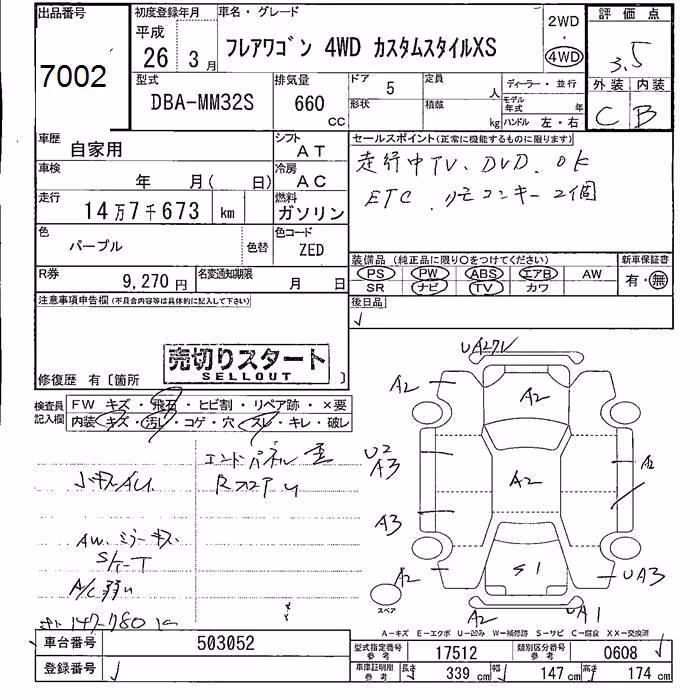 出品番号 7002
初度登録年月 平成 26 3月
車名・グレード フレアワゴン 4WD カスタムスタイルXS
2WD・4WD
評価点 3.5
外装 C 内装 B
型式 DBA-MM32S
排気量 660 CC
ドア 5 形状
定員 人 積載 kg
ディーラー・並行
モデル年式 年
ハンドル 左・右
車歴 自家用
シフト AT
車検 年 月( 日)
冷房 AC
走行 14万7千673 km
燃料 ガソリン
色 パープル 色替
色コード ZED
R券 9,270円
名変通知期限 月 日
セールスポイント(正常に機能するものに限ります)
走行中TV、DVD、OK
ETC、リモコンキー2個
装備品(純正品に限り○をつけてください)
PS PW ABS エアB AW
SR ナビ TV カワ
新車保証書 有・無
後日品
注意事項申告欄(不具合内容等は具体的に記入して下さい)
売切りスタート
SELLOUT
修復歴 有〔箇所 〕
検査員記入欄
FW キズ・飛石・ヒビ割・リペア跡・×要
内装 キズ・汚レ・コゲ・穴・スレ・キレ・破レ
エンドパネル歪
RフロアU
小キズAU
AW、ミラーキズ
A/C弱い
147780 km
UA2 A2 A2
U2 A3 A2 A2
A3
A2 S1 UA3
A2 UA1
スペア
A−キズ E−エクボ U−凹み W−補修跡 S−サビ C−腐食 XX−交換済
車台番号 503052
登録番号
型式指定番号 参考 17512
類別区分番号 参考 0608
車庫証明用 参考 長さ 339 cm 幅 147 cm 高さ 174 cm